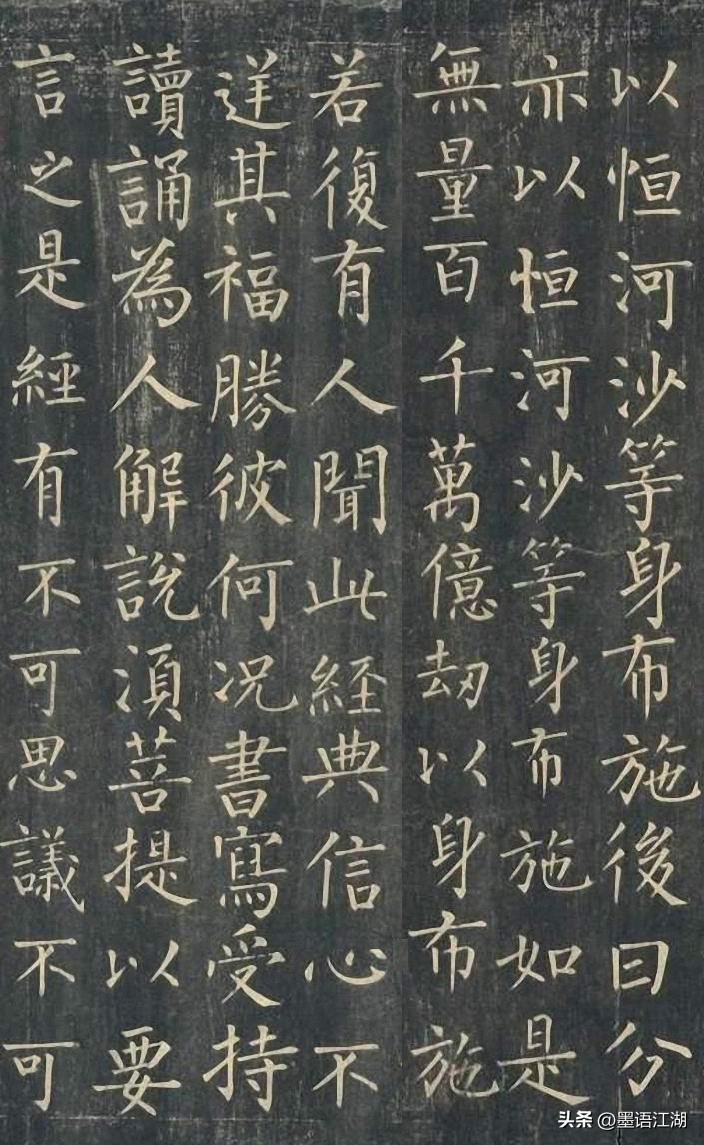 以恒河沙等身布施後日分
亦以恒河沙等身布施如是
無量百千萬億劫以身布施
若復有人聞此經典信心不
逆其福勝彼何况書寫受持
讀誦為人解說須菩提以要
言之是經有不可思議不可
头条 @墨语江湖